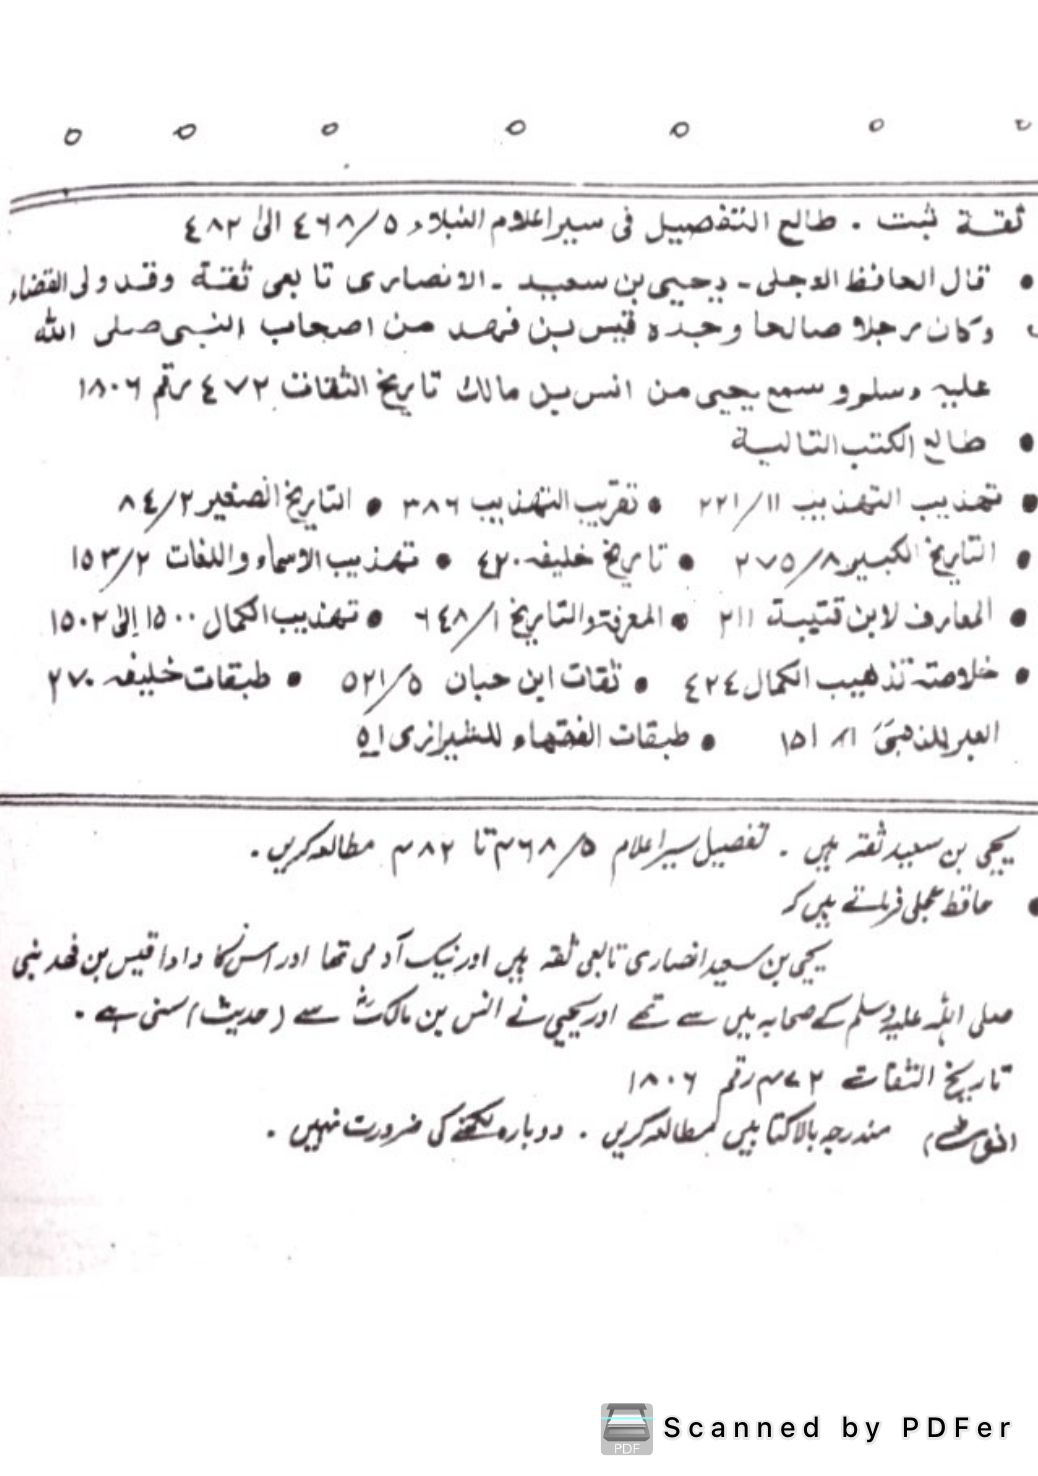 ثقة ثبت . طالع التفصيل فى سير اعلام النبلاء ٤٦٨/٥ الى ٤٨٢
• قال الحافظ العجلى - يحيى بن سعيد - الانصارى تابعى ثقة وقد ولى القضاء
وكان رجلا صالحا وجده قيس بن فهد من اصحاب النبى صلى الله
عليه وسلم و سمع يحيى من انس بن مالك تاريخ الثقات ٤٧٢ رقم ١٨٠٦
• طالع الكتب التالية
• تهذيب التهذيب ٢٢١/١١ • تقريب التهذيب ٣٨٦ • التاريخ الصغير ٨٤/٢
• التاريخ الكبير ٢٧٥/٨ • تاريخ خليفه ٤٢٠ • تهذيب الاسماء واللغات ١٥٣/٢
• المعارف لابن قتيبة ٢١١ • المعرفة والتاريخ ٦٤٨/١ • تهذيب الكمال ١٥٠٠ إلى ١٥٠٢
• خلاصة تذهيب الكمال ٤٢٤ • ثقات ابن حبان ٥٢١/٥ • طبقات خليفه ٢٧٠
العبر للذهبى ١٥١ • طبقات الفقهاء للشيرازى ٥١
یحیی بن سعید ثقہ ہیں ۔ تفصیل سیر اعلام ۴۶۸/۵ تا ۴۸۲ مطالعہ کریں ۔
• حافظ عجلی فرماتے ہیں کہ
یحیی بن سعید انصاری تابعی ثقہ ہیں اور نیک آدمی تھا اور اس کا دادا قیس بن فھد نبی
صلی اللہ علیہ وسلم کے صحابہ میں سے تھے اور یحیی نے انس بن مالکؓ سے (حدیث) سنی ہے ۔
تاریخ الثقات ۴۷۲ رقم ۱۸۰۶
(نوٹ) مندرجہ بالا کتابیں مطالعہ کریں ۔ دوبارہ لکھنے کی ضرورت نہیں ۔
PDF
Scanned by PDFer